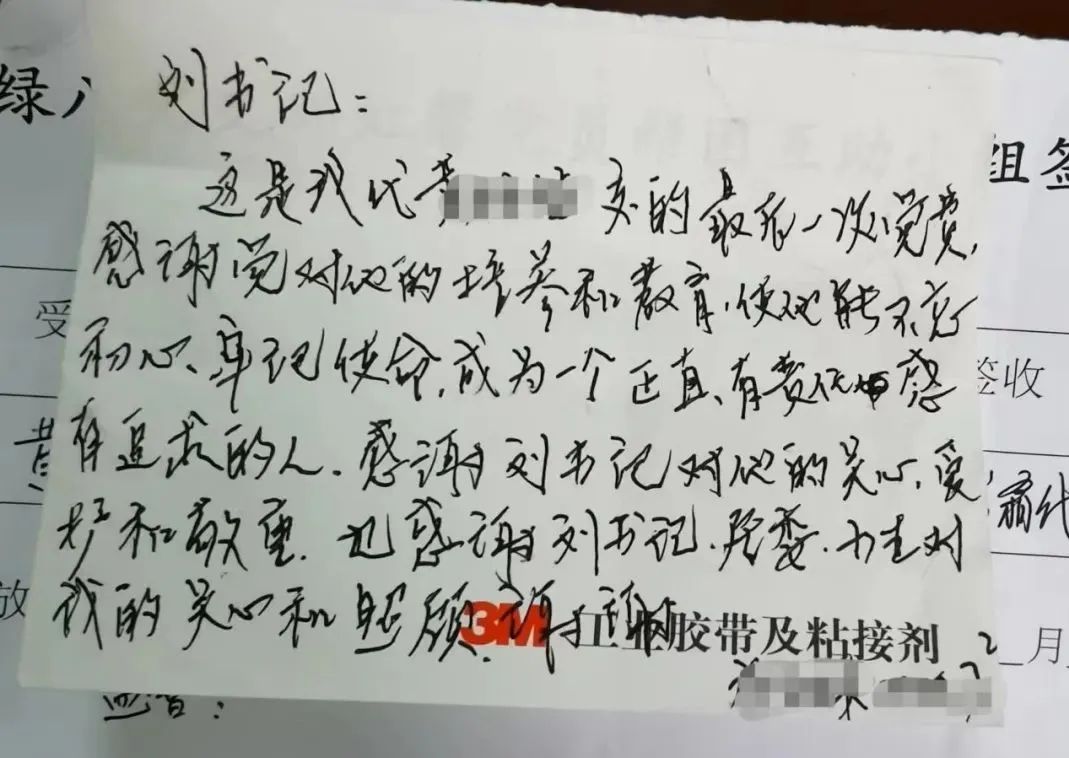 刘书记：
这是我代黄 交的最后一次党费，
感谢党对他的培养和教育，使他能不忘
初心、牢记使命，成为一个正直、有责任感
有追求的人。感谢刘书记对他的关心、爱
护和敬重。也感谢刘书记、陈委、小生对
我的关心和照顾。谢谢
3M 工业胶带及粘接剂
绿
组签
受
签收
放
月